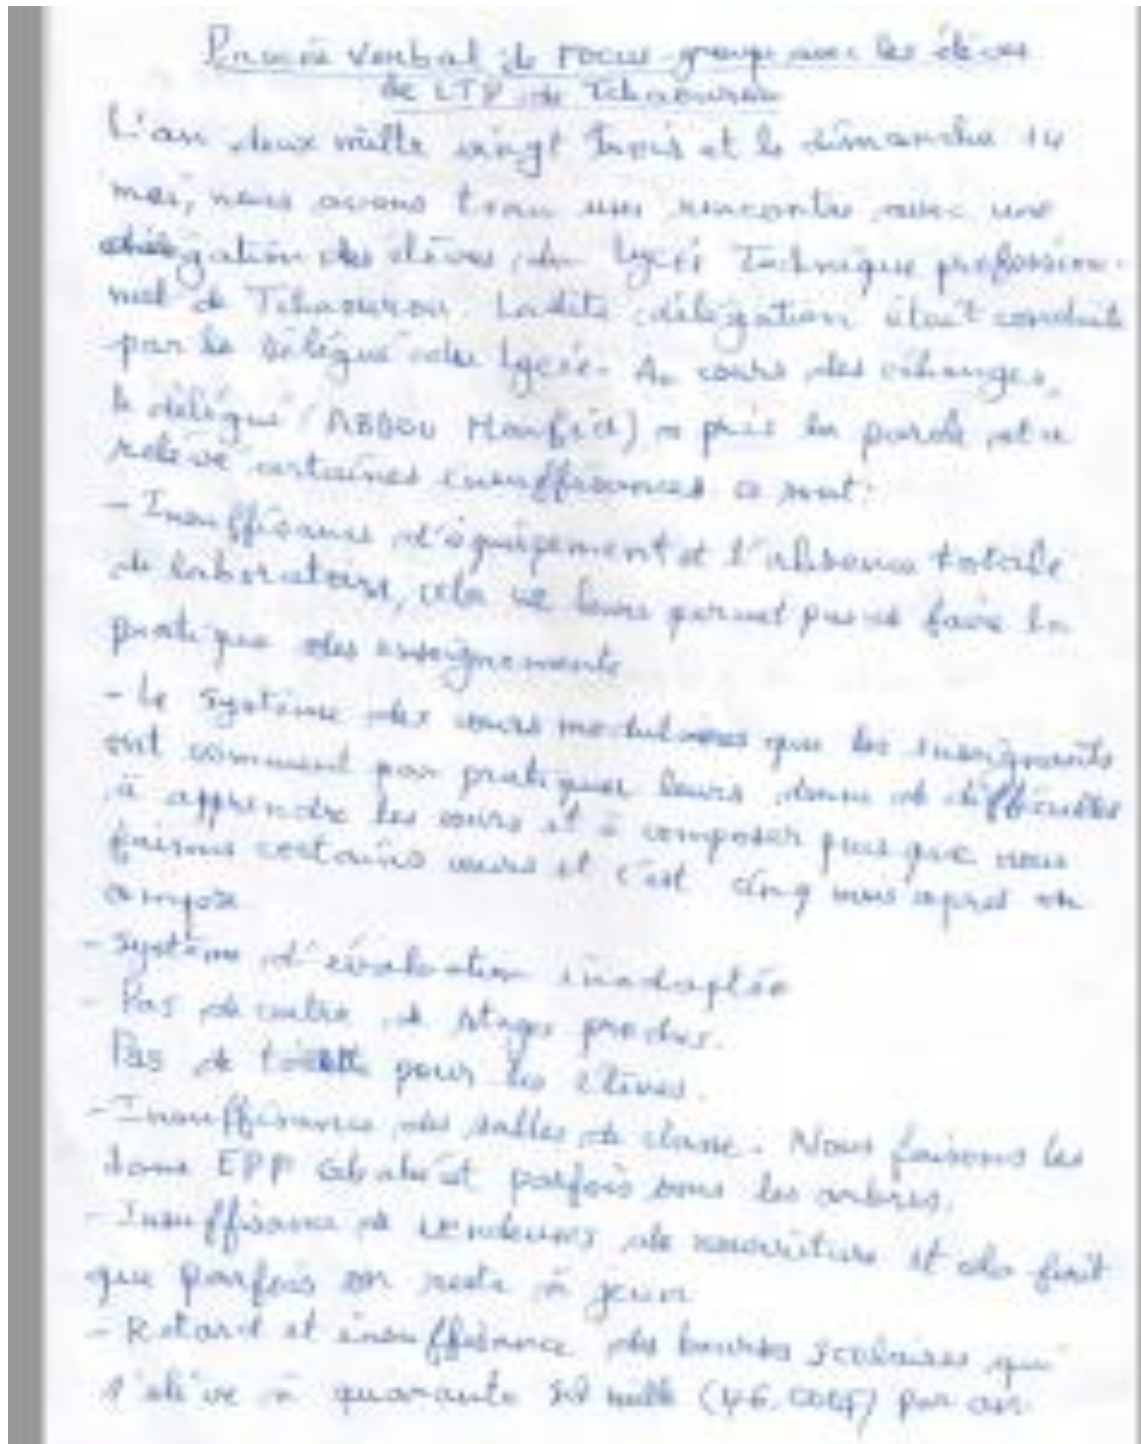 Procès Verbal de Focus-group avec les élèves
de LTP de Tchaourou
L'an deux mille vingt trois et le dimanche 14
mai, nous avons tenu une rencontre avec une
délégation des élèves du lycée Technique profession-
nel de Tchaourou. Ladite délégation était conduite
par le délégué du lycée. Au cours des échanges,
le délégué (ABDOU Moufid) a pris la parole et a
relevé certaines insuffisances ce sont:
- Insuffisance d'équipement et l'absence totale
de laboratoire, cela ne leurs permet pas de faire la
pratique des enseignements
- Le système des cours modulaires que les enseignants
ont commencé par pratiquer leurs donne de difficultés
à apprendre les cours et à composer puis que nous
faisons certains cours et c'est cinq mois après on
compose
- Système d'évaluation inadaptée
- Pas de centre de stages proches.
Pas de toilette pour les élèves.
- Insuffisance des salles de classe. Nous faisons les
dans EPP et parfois sous les arbres.
- Insuffisance de vendeuses de nourriture et cela fait
que parfois on reste à jeun
- Retard et insuffisance des bourses scolaires qui
s'élève à quarante six mille (46.000F) par an.